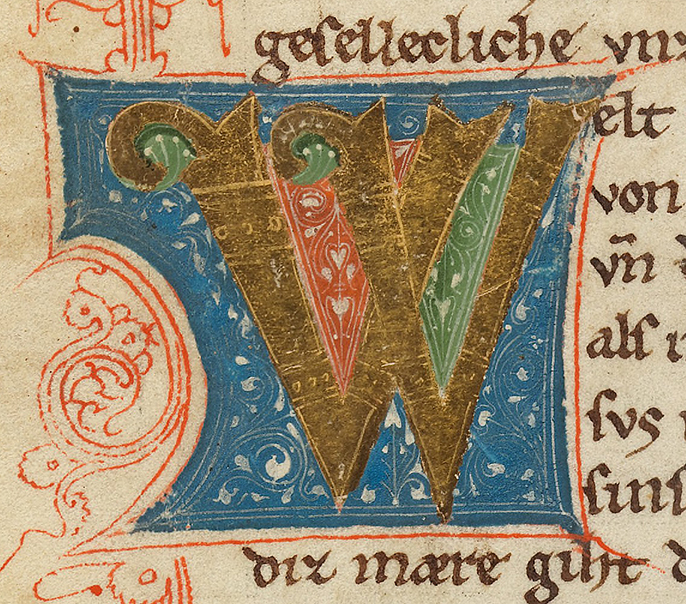 geſellecliche vn
Welt
von
vn̄
alſ
ſvs
ſinſ
diz mære giht d